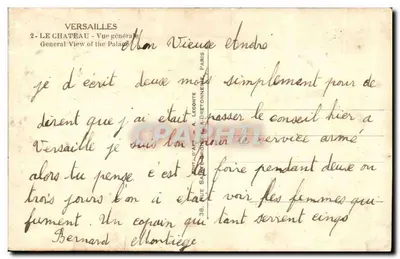 VERSAILLES
2 - LE CHATEAU - Vue générale
General View of the Palace
Mon Vieuse Andro
je d'ecrit deuse mots simplement pour de
dirent que j'ai etait passer le conseil hier a
Versaille je suis bon pour le service armé
alors tu pense c est la foire pendant deuse ou
trois jours bon a etait voir les femmes qui
fument. Un copain qui tant serrent cinqs
Bernard
A. LECONTE
38, RUE SAINTE-CROIX-DE-LA-BRETONNERIE, PARIS